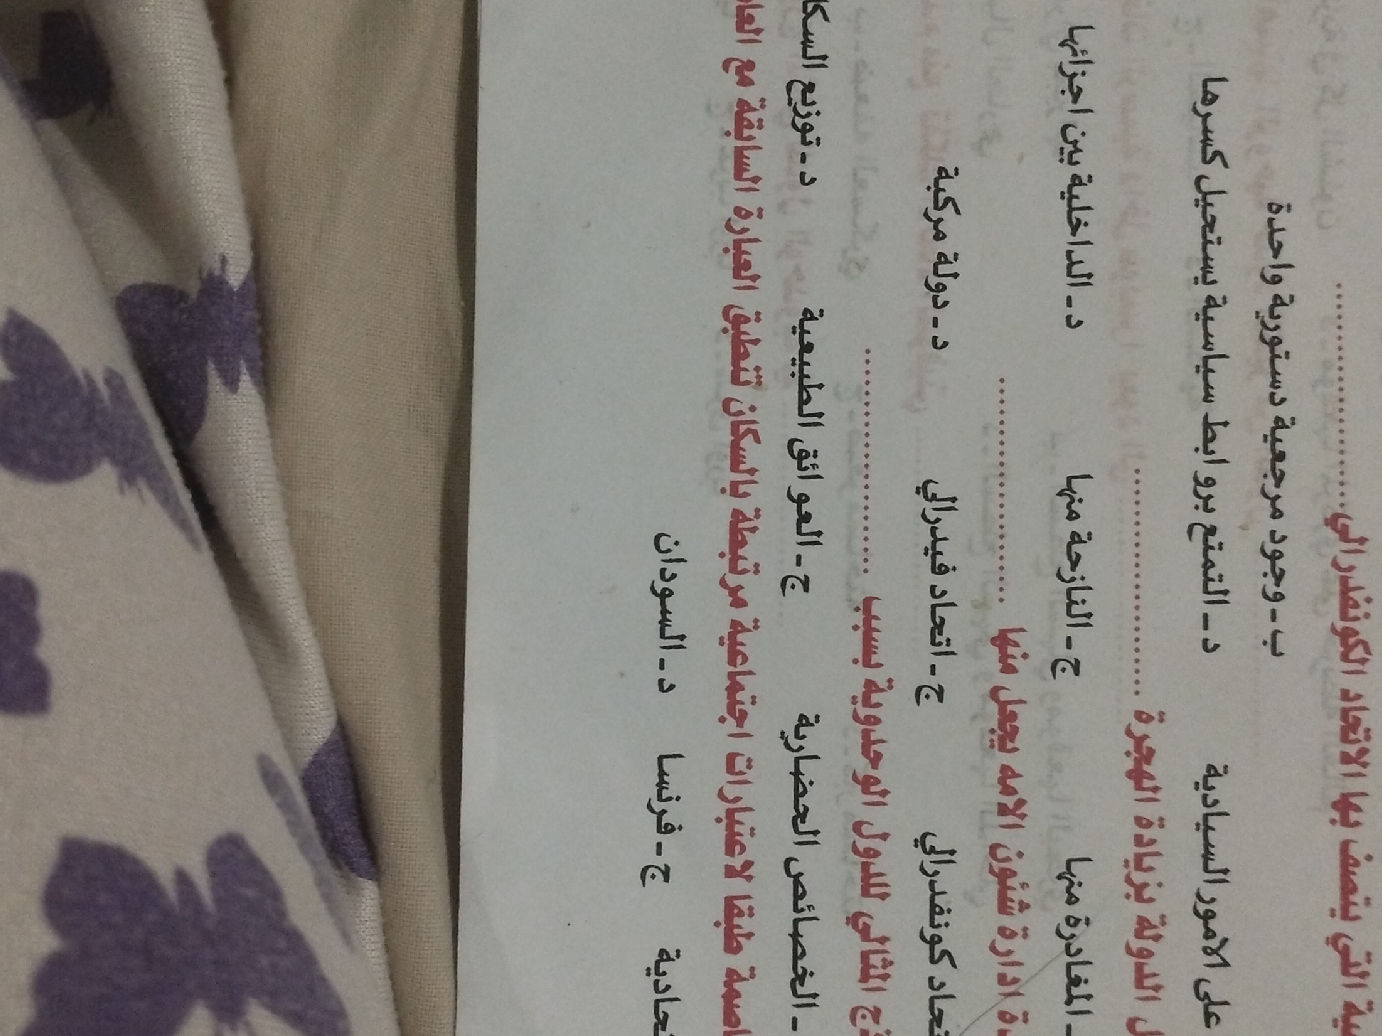 ية التي يتصف بها الاتحاد الكونفدرالي....................
ب- وجود مرجعية دستورية واحدة
على الامور السيادية د- التمتع بروابط سياسية يستحيل كسرها
ل الدولة بزيادة الهجرة ....................
- المغادرة منها ج- النازحة منها د- الداخلية بين اجزائها
دة ادارة شئون الامه يجعل منها ....................
تحاد كونفدرالي ج- اتحاد فيدرالي د- دولة مركبة
ذج المثالي للدول الوحدوية بسبب ....................
- الخصائص الحضارية ج- العوائق الطبيعية د- توزيع السكا
اصمة طبقا لاعتبارات اجتماعية مرتبطة بالسكان تنطبق العبارة السابقة مع العا
تحادية ج- فرنسا د- السودان